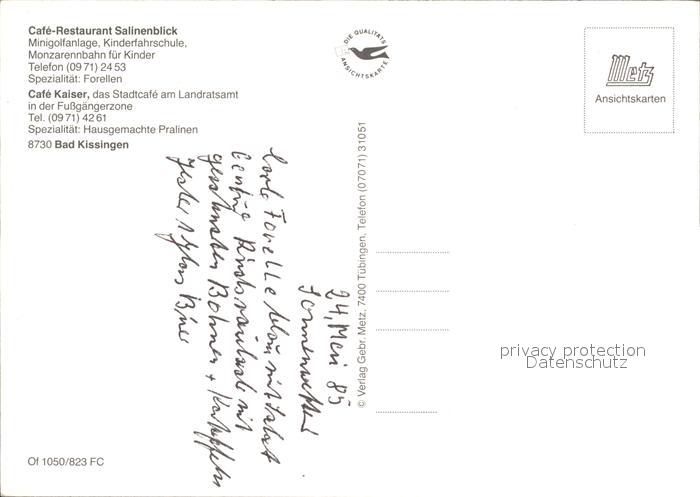 Café-Restaurant Salinenblick
Minigolfanlage, Kinderfahrschule,
Monzarennbahn für Kinder
Telefon (09 71) 24 53
Spezialität: Forellen
Café Kaiser, das Stadtcafé am Landratsamt
in der Fußgängerzone
Tel. (09 71) 42 61
Spezialität: Hausgemachte Pralinen
8730 Bad Kissingen
DIE QUALITÄTS
ANSICHTSKARTE
Metz
Ansichtskarten
© Verlag Gebr. Metz, 7400 Tübingen, Telefon (07071) 31051
24, Mai 85
Sonnenwetter
Forelle blau mit Salat
Rindsroulade mit
Bohnen + Kartoffeln
privacy protection
Datenschutz
Of 1050/823 FC